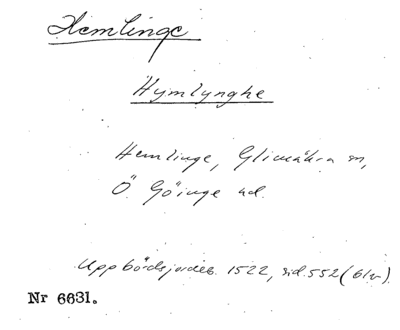 Hemlinge
Hymlynghe
Hemlinge, Glimåkra sn,
Ö. Göinge hd.
Uppbördsjordeb. 1522, sid. 552 (Glr).
Nr 6631.